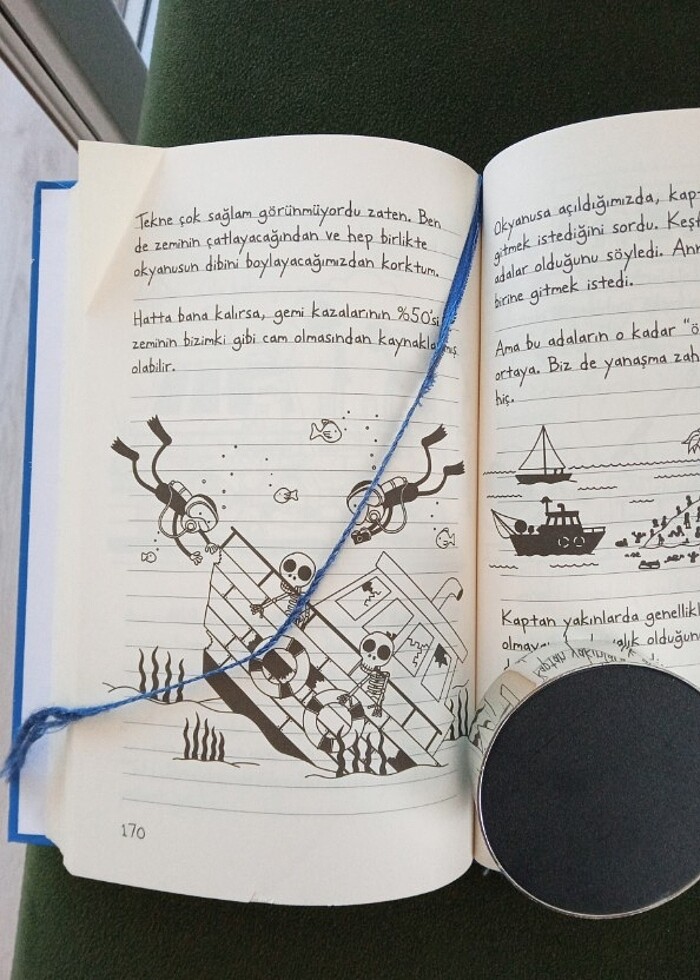 Tekne çok sağlam görünmüyordu zaten. Ben
de zeminin çatlayacağından ve hep birlikte
okyanusun dibini boylayacağımızdan korktum.
Hatta bana kalırsa, gemi kazalarının %50'si
zeminin bizimki gibi cam olmasından kaynaklanmış
olabilir.
170
Okyanusa açıldığımızda,
gitmek istediğini sordu.
adalar olduğunu söyledi.
birine gitmek istedi.
Ama bu adaların o kadar
ortaya. Biz de yanaşma
hiç.
Kaptan yakınlarda